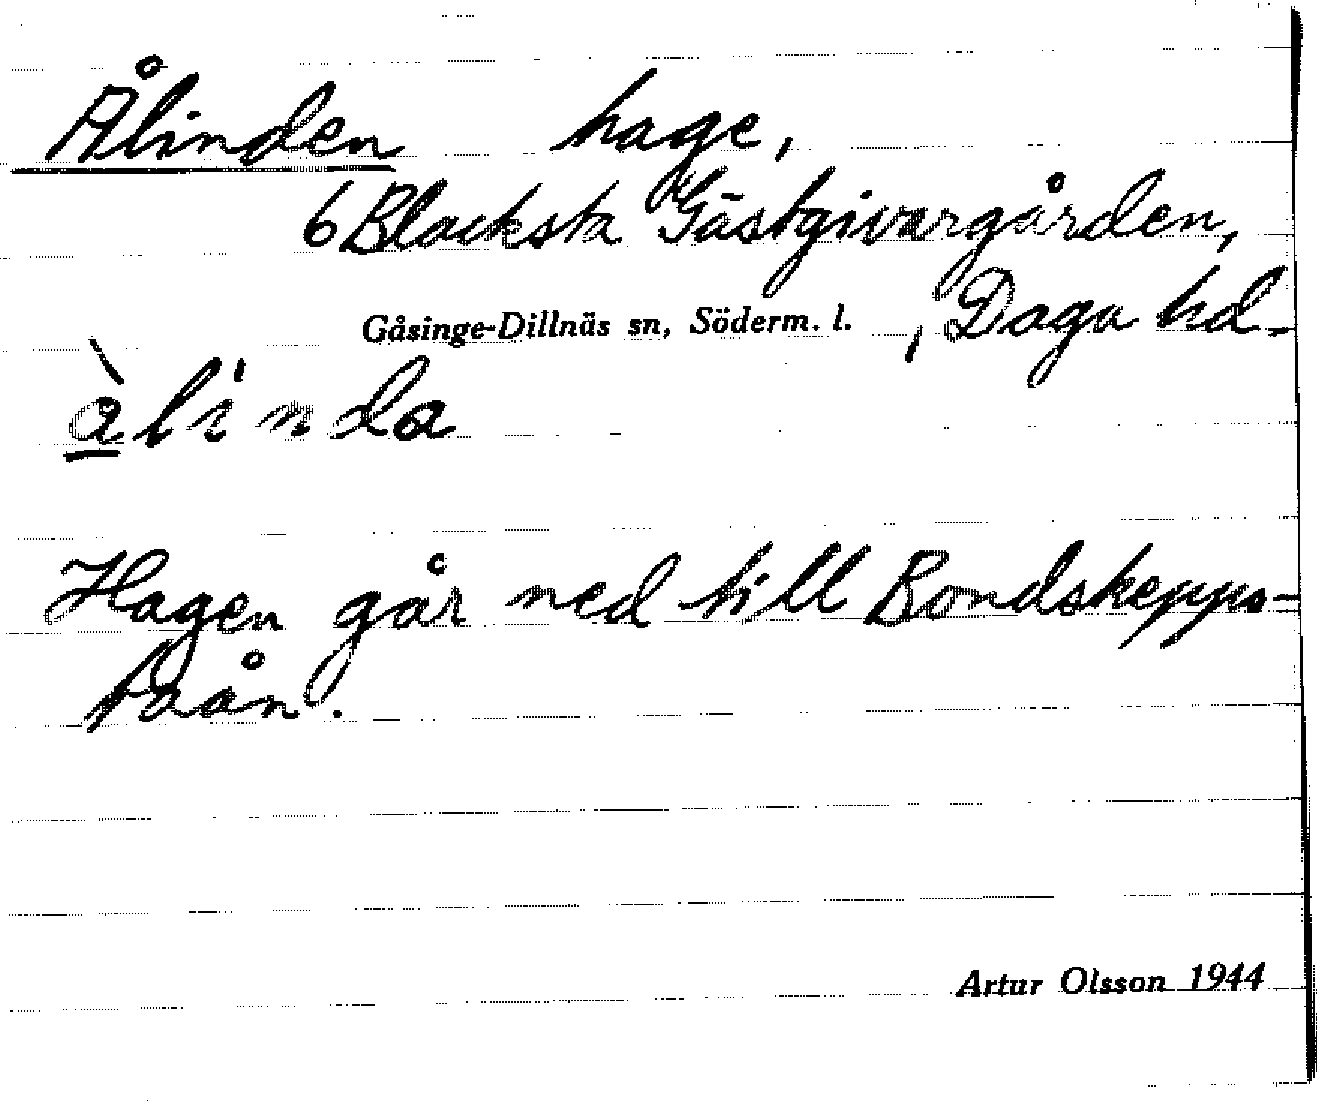 Ålinden hage,
6 Blacksta Gästgivargården,
Gåsinge-Dillnäs sn, Söderm. l. , Daga hd.
àlinda
Hagen går ned till Bondskepps-
taån.
Artur Olsson 1944